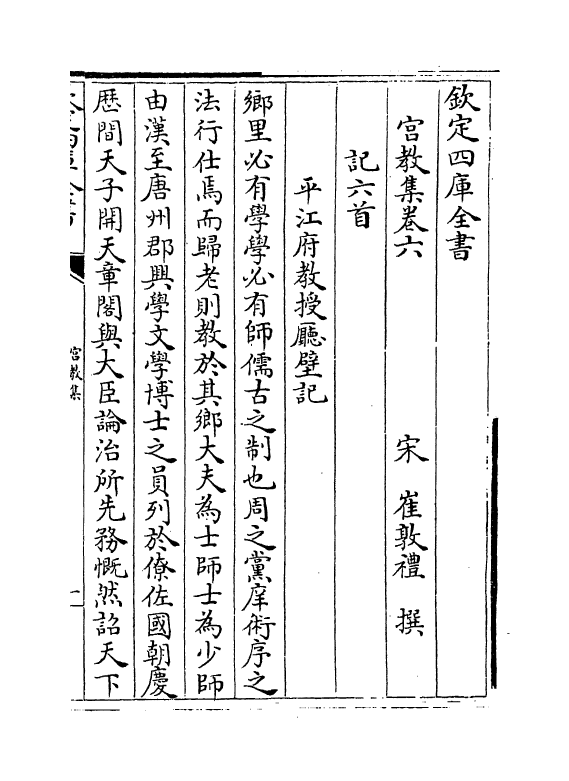 欽定四庫全書
宮教集卷六
宋 崔敦禮 撰
記六首
平江府教授廳壁記
鄉里必有學學必有師儒古之制也周之黨庠術序之
法行仕焉而歸老則教於其鄉大夫為士師士為少師
由漢至唐州郡興學文學博士之員列於僚佐國朝慶
厯間天子開天章閣與大臣論治所先務慨然詔天下
宮教集